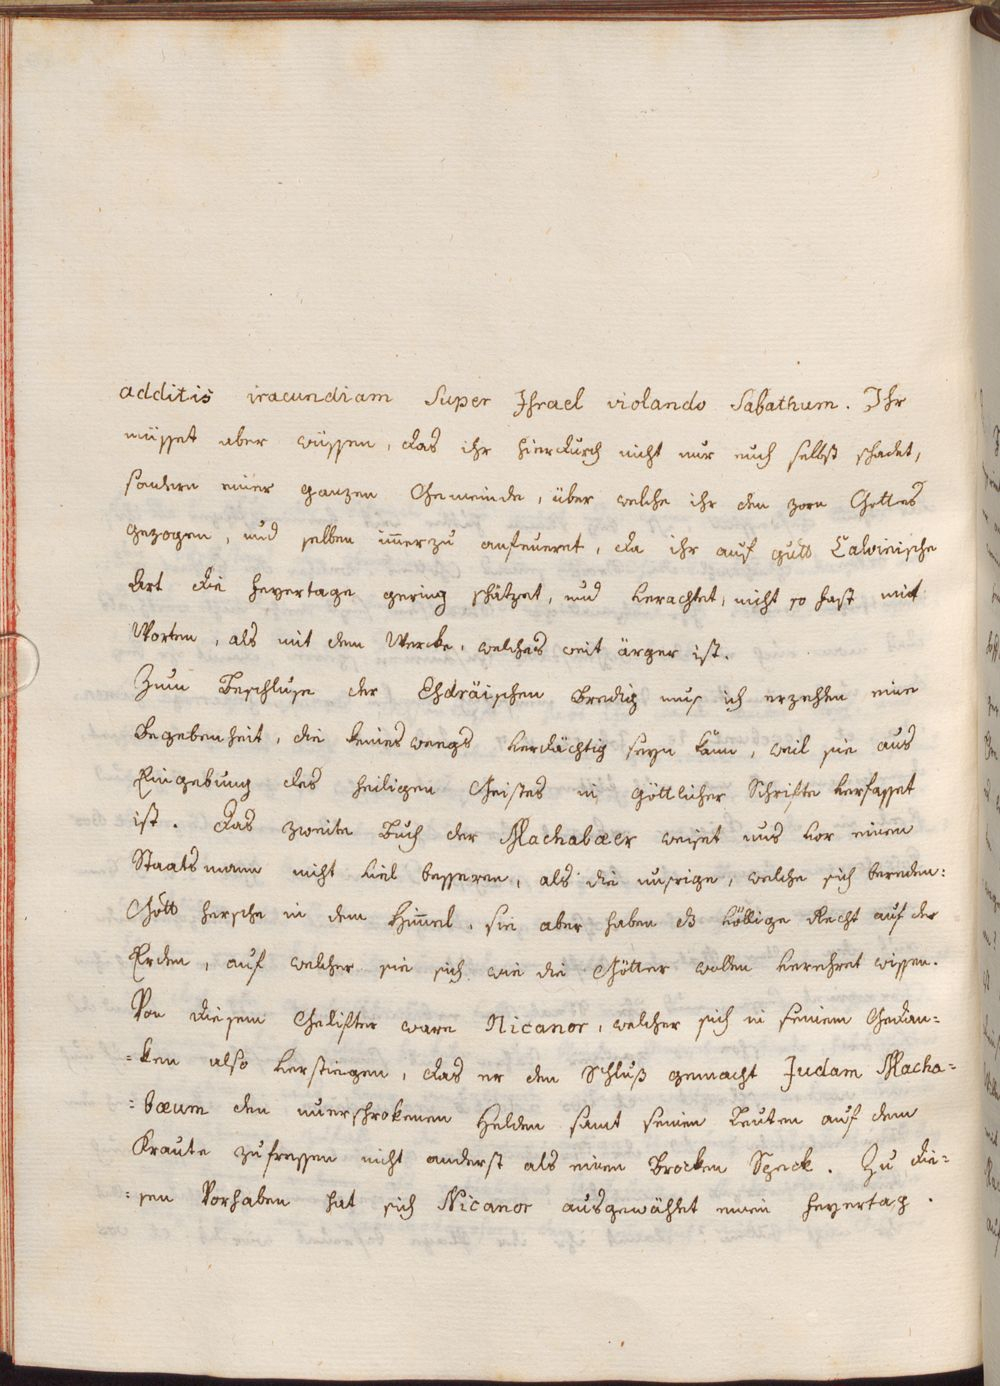 additis iracundiam super Israel violando Sabathum. Ihr
müsset aber wüssen, das ihr hierdurch nicht nur euch selbst schadet,
sondern einer ganzen Gemeinde, über welche ihr den zorn Gottes
gezogen, und selben im̅erzu anfeueret, da ihr auf gutt Calvinische
Art die feyertage gering schätzet, und verachtet, nicht so fast mit
Worten, als mit dem Wercke, welches weit ärger ist.
Zum Beschluse der Esdräischen Bredig mus ich erzehlen eine
Begebenheit, die keines weegs verdächtig seyn kan̅, weil sie aus
Eingebung des heiligen Geistes in göttlicher Schrifte verfasset
ist. Das zweite Buch der Machabæer weiset uns vor einen
Staatsmann nicht viel besseren, als die unsrige, welche sich bereden:
Gott hersche in dem Him̅el, sie aber haben dz völlige Recht auf der
Erden, auf welcher sie sich wie die Götter wollen verehret wissen.
Von diesem Gelifter ware Nicanor, welcher sich in seinem Gedan=
=ken also verstiegen, das er den Schluß gemacht Judam Macha=
=bæum den unerschrokenen Helden samt seinen Leuten auf dem
Kraute zufressen nicht anderst als einen Brocken Speck. Zu die=
=sen Vorhaben hat sich Nicanor ausgewählet einen feyertag.